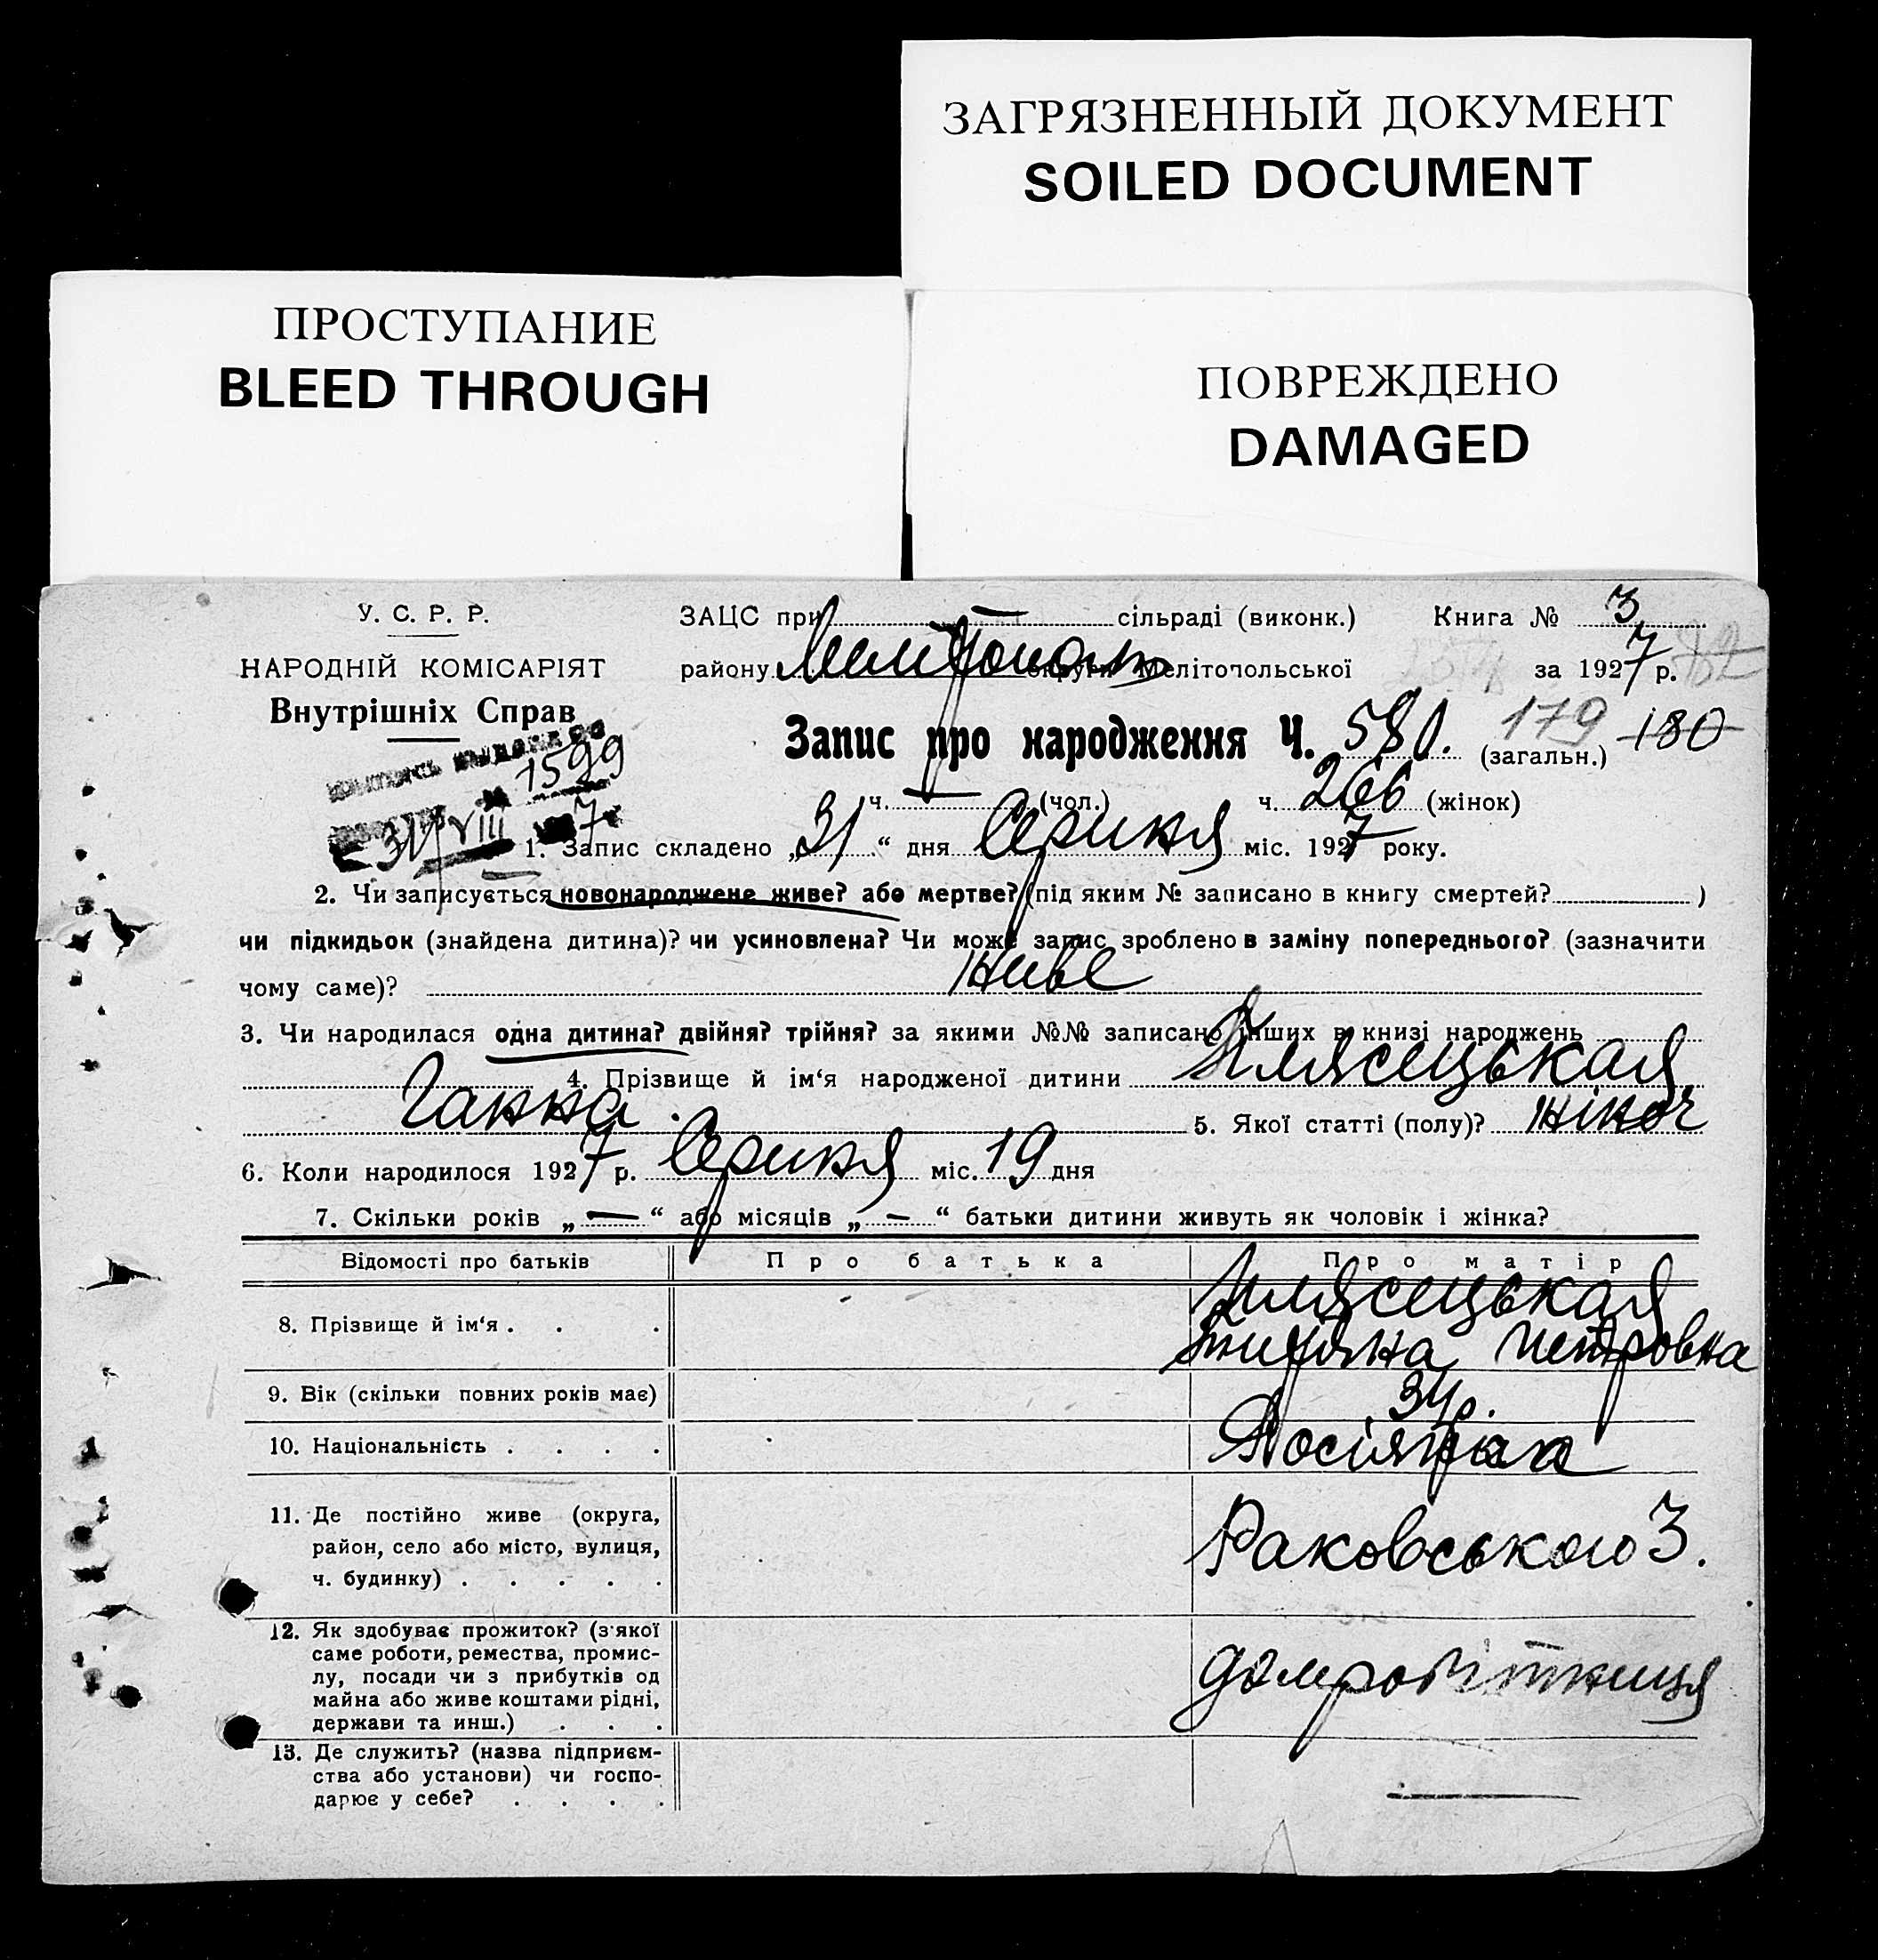 ЗАГРЯЗНЕННЫЙ ДОКУМЕНТ
SOILED DOCUMENT
ПРОСТУПАНИЕ
BLEED THROUGH
ПОВРЕЖДЕНО
DAMAGED
У. С. Р. Р.
НАРОДНІЙ КОМІСАРІЯТ
Внутрішніх Справ
1599
31 VIII 7
ЗАЦС при сільраді (виконк.) Книга № 3
району Мелітополь округи Мелітопольської за 1927 р.
Запис про народження Ч. 580. (загальн.) 179 180
ч. — (чол.) ч. 266 (жінок)
1. Запис складено „31“ дня Серпня міс. 1927 року.
2. Чи записується новонароджене живе? або мертве? (під яким № записано в книгу смертей? )
чи підкидьок (знайдена дитина)? чи усиновлена? Чи може запис зроблено в заміну попереднього? (зазначити
чому саме)? живе
3. Чи народилася одна дитина? двійня? трійня? за якими №№ записано інших в книзі народжень
4. Прізвище й ім‘я народженої дитини
Ганна. 5. Якої статті (полу)? жіноч
6. Коли народилося 1927 р. Серпня міс. 19 дня
7. Скільки років „—“ або місяців „—“ батьки дитини живуть як чоловік і жінка?
Відомості про батьків Про батька Про матір
8. Прізвище й ім‘я . . . Петровна
9. Вік (скільки повних років має) 34 р.
10. Національність . . . .
11. Де постійно живе (округа,
район, село або місто, вулиця,
ч. будинку) . . . . . Раковського 3.
12. Як здобуває прожиток? (з якої
саме роботи, ремества, промис-
лу, посади чи з прибутків од
майна або живе коштами рідні,
держави та инш.) . . . домробітниця
13. Де служить? (назва підприєм-
ства або установи) чи госпо-
дарює у себе? . . . . —